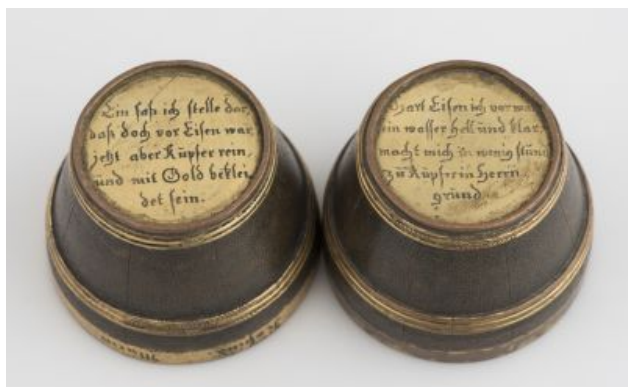 Ein faß ich stelle dar,
daß doch vor Eisen war,
jetzt aber Kupfer rein,
und mit Gold beklei
det sein.
Hart Eisen ich vor war
ein wasser hell und klar,
macht mich in wenig stund
zu Kupfer in Herrn
grund